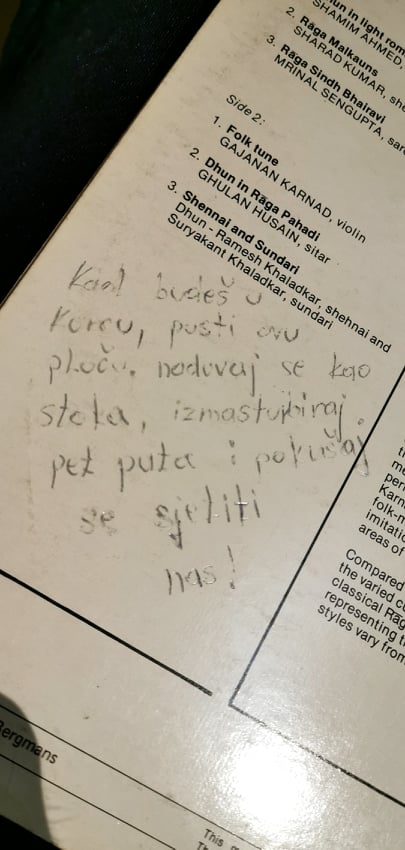 un in light rom
SHAMIM AHMED,
2. Rāga Malkauns
SHARAD KUMAR, she
3. Rāga Sindh Bhairavi
MRINAL SENGUPTA, saro
Side 2:
1. Folk tune
GAJANAN KARNAD, violin
2. Dhun in Rāga Pahadi
GHULAN HUSAIN, sitar
3. Shennai and Sundari
Dhun - Ramesh Khaladkar, shehnai and
Suryakant Khaladkar, sundari
Kad budeš u
kurcu, pusti ovu
ploču, naduvaj se kao
stoka, izmasturbiraj
pet puta i pokušaj
se sjetiti
nas!
Karn
folk-m
imitatio
areas of
Compared
the varied cu
classical Rāg
representing th
styles vary from
Bergmans
This